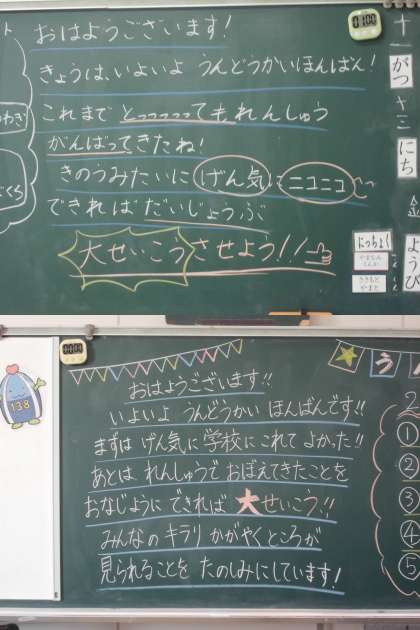 おはようございます!
きょうは、いよいよ うんどうかいほんばん!
これまで とっっっっっても れんしゅう
がんばってきたね!
きのうみたいに げん気 に ニコニコ で
できれば だいじょうぶ
大せいこう させよう!!
十一
がつ
十三
にち
金
ようび
にっちょく
01:00
00:00
138
おはようございます!!
いよいよ うんどうかい ほんばんです!!
まずは げん気に 学校に これて よかった!!
あとは れんしゅうで おぼえてきたことを
おなじように できれば 大せいこう!!
みんなの キラリ かがやくところが
見られることを たのしみにしています!
う
2
①
②
③
④
⑤